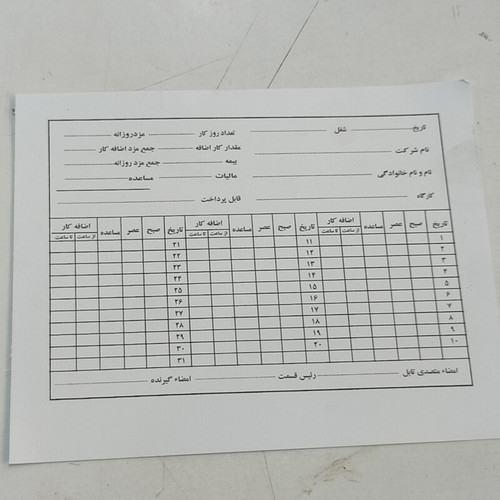 تاریخ شغل تعداد روز کار مزد روزانه
نام شرکت مقدار کار اضافه جمع مزد اضافه کار
نام و نام خانوادگی بیمه جمع مزد روزانه
مالیات مساعده
کارگاه قابل پرداخت
تاریخ صبح عصر مساعده اضافه کار تاریخ صبح عصر مساعده اضافه کار تاریخ صبح عصر مساعده اضافه کار
از ساعت تا ساعت از ساعت تا ساعت از ساعت تا ساعت
۱ ۱۱ ۲۱
۲ ۱۲ ۲۲
۳ ۱۳ ۲۳
۴ ۱۴ ۲۴
۵ ۱۵ ۲۵
۶ ۱۶ ۲۶
۷ ۱۷ ۲۷
۸ ۱۸ ۲۸
۹ ۱۹ ۲۹
۱۰ ۲۰ ۳۰
۳۱
امضاء متصدی تایل رئیس قسمت امضاء گیرنده